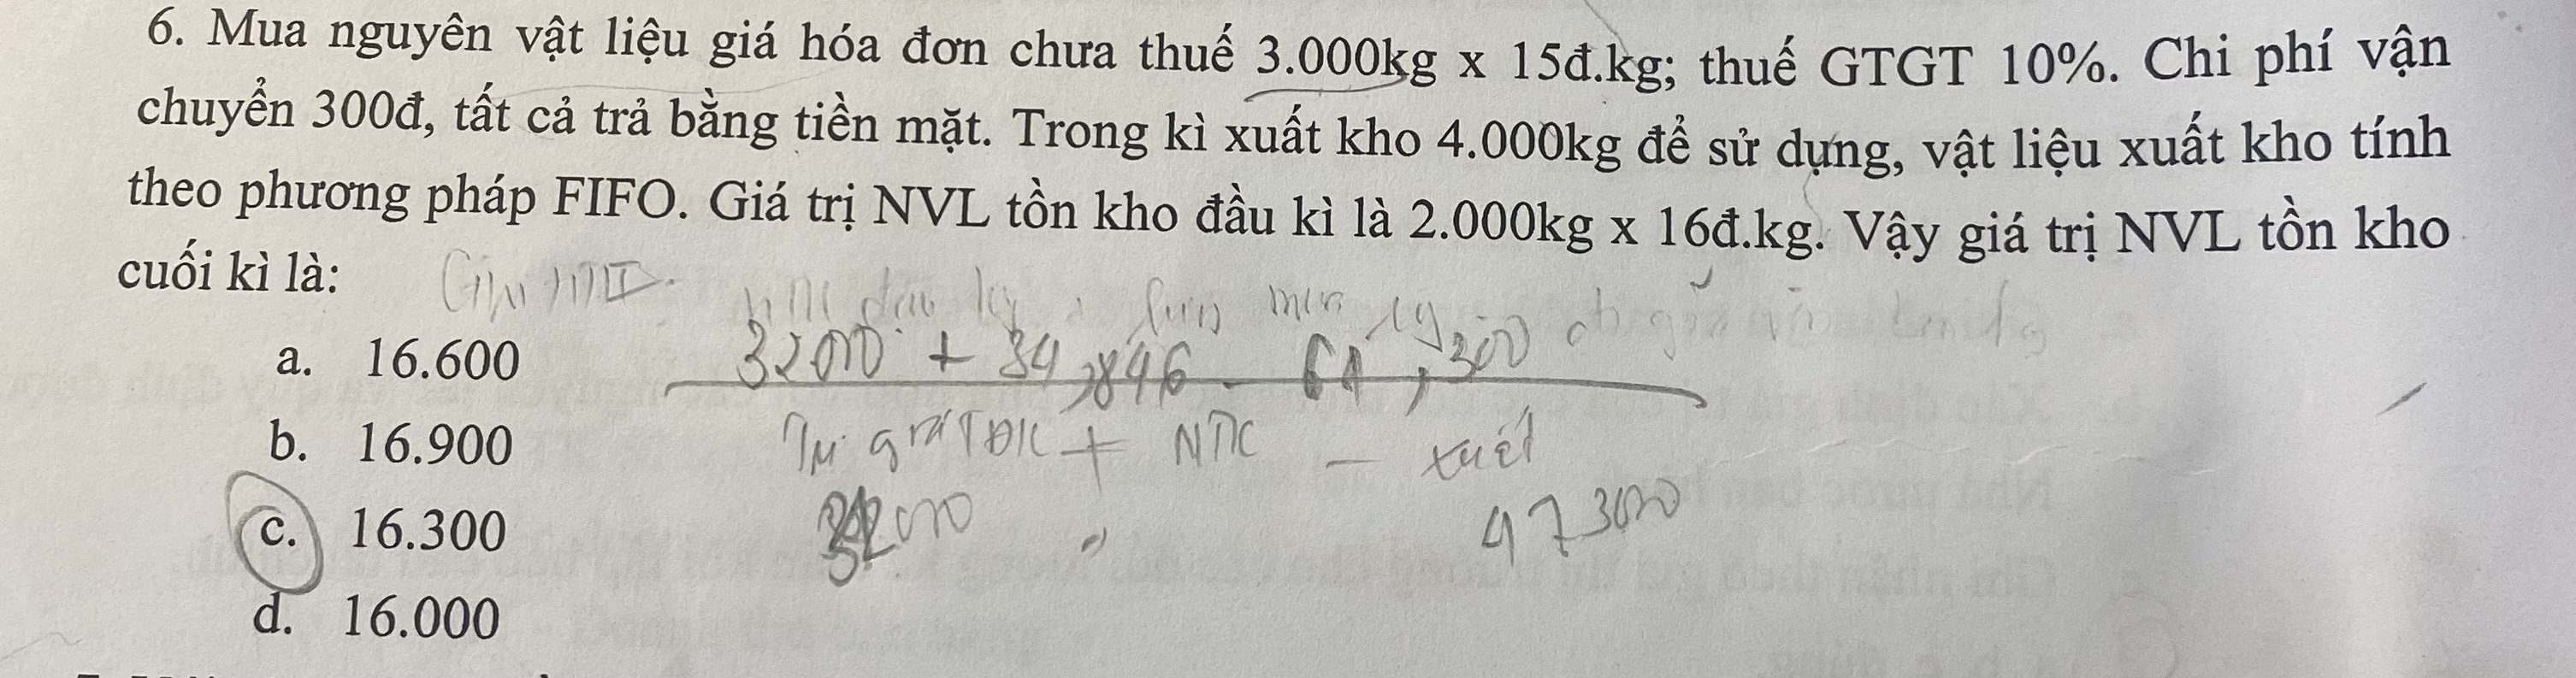 6. Mua nguyên vật liệu giá hóa đơn chưa thuế 3.000kg x 15đ.kg; thuế GTGT 10%. Chi phí vận
chuyển 300đ, tất cả trả bằng tiền mặt. Trong kì xuất kho 4.000kg để sử dụng, vật liệu xuất kho tính
theo phương pháp FIFO. Giá trị NVL tồn kho đầu kì là 2.000kg x 16đ.kg. Vậy giá trị NVL tồn kho
cuối kì là:
a. 16.600
b. 16.900
c. 16.300
d. 16.000
+ 34,846
+ NTK - xuất
47300